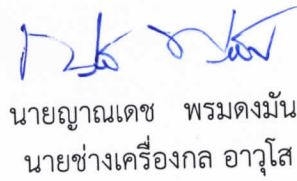 นายญาณเดช พรมดงมัน
นายช่างเครื่องกล อาวุโส